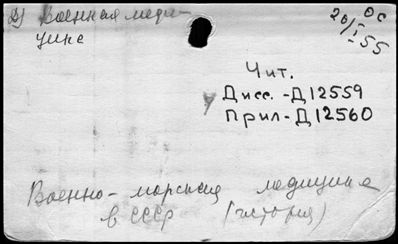 2) Военная меди-
цина
ОС
20/I-55
Чит.
у Дисс. -Д12559
Прил-Д12560
Военно-морская медицина
в СССР (история)